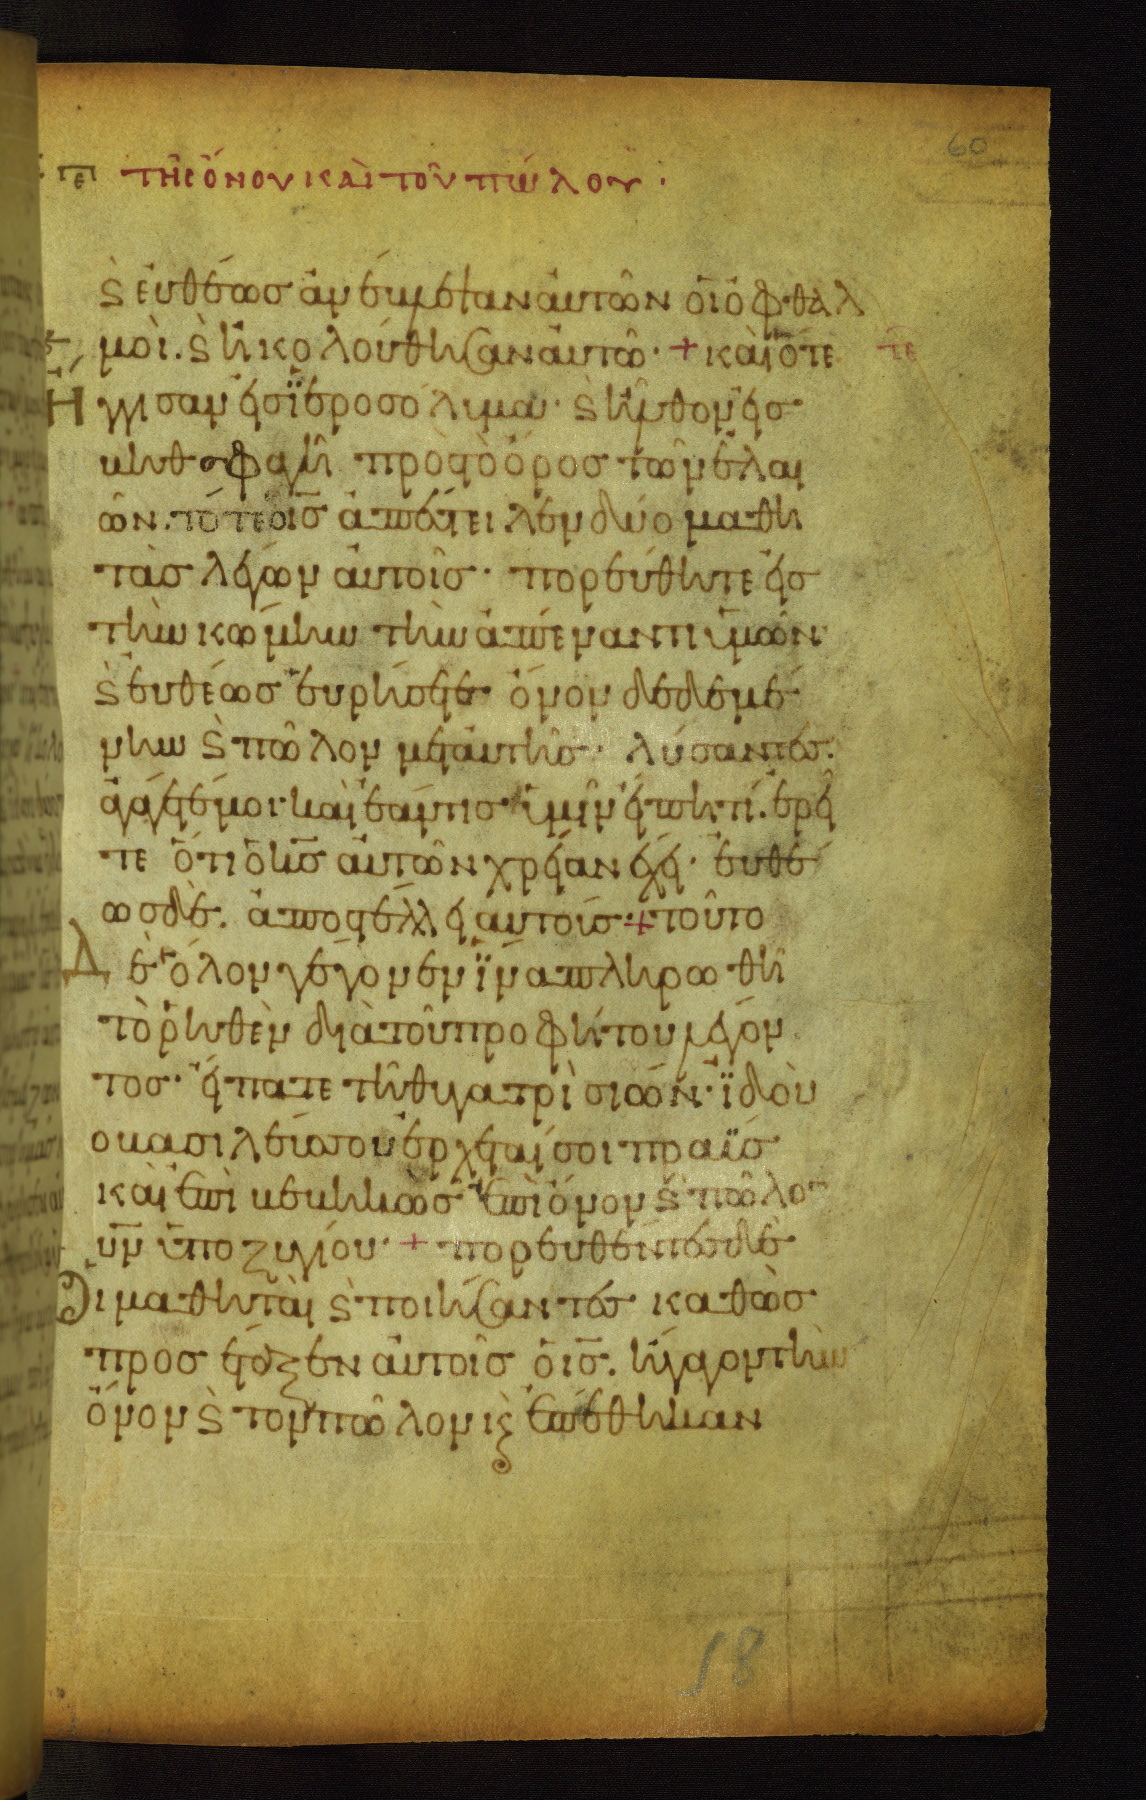 60
πε τῆς ὄνου καὶ τοῦ πώλου·
ϗ εὐθέως ἀνέβλεψαν αὐτῶν οἱ ὀφθαλ
μοὶ. ϗ ἠκολούθησαν αὐτῶ· + καὶ ὅτε τε
Ηγγισαν εἰς ϊεροσόλιμα· ϗ ἦλθον εἰς
βηθσφαγῆ πρὸς τὸ ὄρος τῶν ἐλαι
ῶν. τότε ὁ ις̄ ἀπέστειλεν δύο μαθη
τὰς λέγων αὐτοῖς· πορεύθητε εἰς
τὴν κώμην τὴν ἀπέναντι ὑμῶν
ϗ εὐθέως εὑρήσετε ὄνον δεδεμέ
νην ϗ πῶλον μετ αὐτῆς· λύσαντες
ἀγάγετέ μοι καὶ ἐάν τις ὑμῖν εἴπη τί. ἐρεῖ
τε ὅτι ὁ κς̄ αὐτῶν χρείαν ἔχει· εὐθέ
ως δὲ. ἀποστέλλει αὐτοίς + τοῦτο
Δὲ ὅλον γέγονεν ϊνα πληρωθῆ
τὸ ῥηθὲν διὰ τοῦ προφήτου λέγον
τος· εἴπατε τῆ θυγατρὶ σιών· ϊδοὺ
ο βασιλεύς σου ἔρχεταί σοι πραΰς
καὶ ἐπὶ βεβηκὼς ἐπὶ ὄνον ϗ πῶλον
υν̄ ὑποζυγίου· + πορευθέντες δὲ
Οι μαθηταὶ ϗ ποιήσαντες καθὼς
προσέταξεν αὐτοῖς ὁ ις̄. ἤγαγον τὴν
ὄνον ϗ τον πῶλον κς ἐπέθηκαν
18